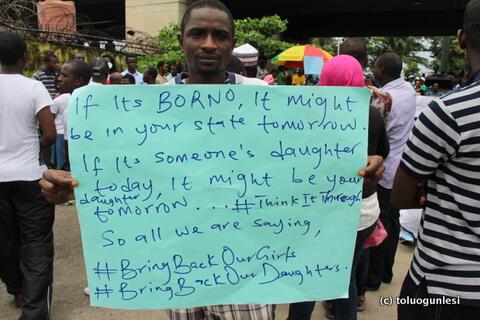 If Its BORNO, It might
be in your state tomorrow.
If Its someone's daughter
today, It might be your
daughter tomorrow.... #ThinkItThrough
So all we are saying,
#BringBackOurGirls
#BringBackOurDaughters.
(c) toluogunlesi